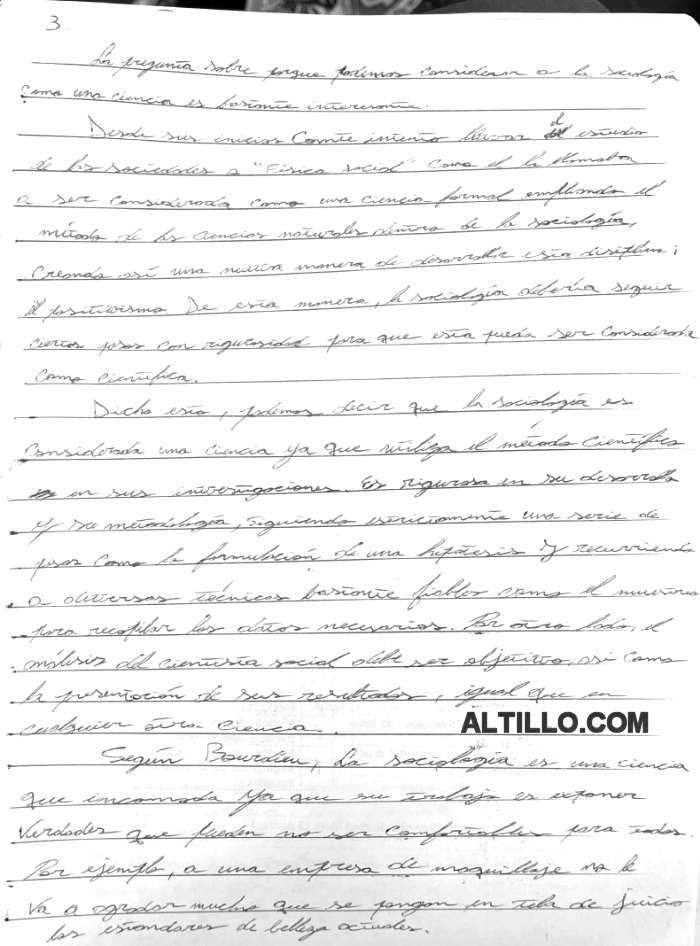 3
La pregunta sobre porque podemos considerar a la sociología
como una ciencia es bastante interesante.
Desde sus inicios Comte intento llevar el estudio
de las sociedades a "Física social" como el la llamaba
a ser considerada como una ciencia formal empleando el
método de las ciencias naturales dentro de la sociología,
creando así una nueva manera de desarrollar esta disiplina;
el positivismo De esta manera, la sociología debería seguir
ciertos pasos con rigurosidad para que esta pueda ser considerada
como científica.
Dicho esto, podemos decir que la sociología es
considerada una ciencia ya que utiliza el método científico
en sus investigaciones. Es rigurosa en su desarrollo
y su metodología, siguiendo estrictamente una serie de
pasos como la formulación de una hipótesis y recurriendo
a diversas técnicas bastante fiables como el muestreo
para recopilar los datos necesarios. Por otro lado, el
análisis del cientista social debe ser objetivo, así como
la presentación de sus resultados, igual que en
cualquier otra ciencia.
ALTILLO.COM
Según Bourdieu, La sociología es una ciencia
que incomoda ya que su trabajo es exponer
verdades que pueden no ser comfortables para todos.
Por ejemplo, a una empresa de maquillaje no le
va a agradar mucho que se pongan en tela de juicio
los estandares de belleza actuales.